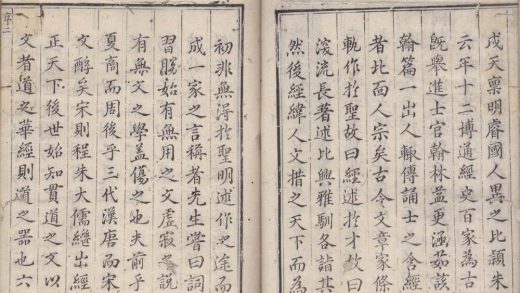 成天禀明睿國人異之比頴朱
六年十二博通經史百家為古
既舉進士官翰林益更涵茹該
翰篇一出人輙傳誦士之含經
者北面人宗矣古今文章家條
軌作扵聖故曰經述扵才故曰
浚流長著述比興雅馴各詣其
然後經緯人文措之天下而為
初非無淂扵聖明述作之途而
成一家之言稱者先生嘗曰詞
習勝始有無用之文虛寂之説
有無文之學盖傷之也夫前乎
夏商而周後乎三代漢唐而宋
文醇矣宋則程朱大儒繼出經
正天下後世始知貫道之文以
文者道之華經則道之器也六
序二